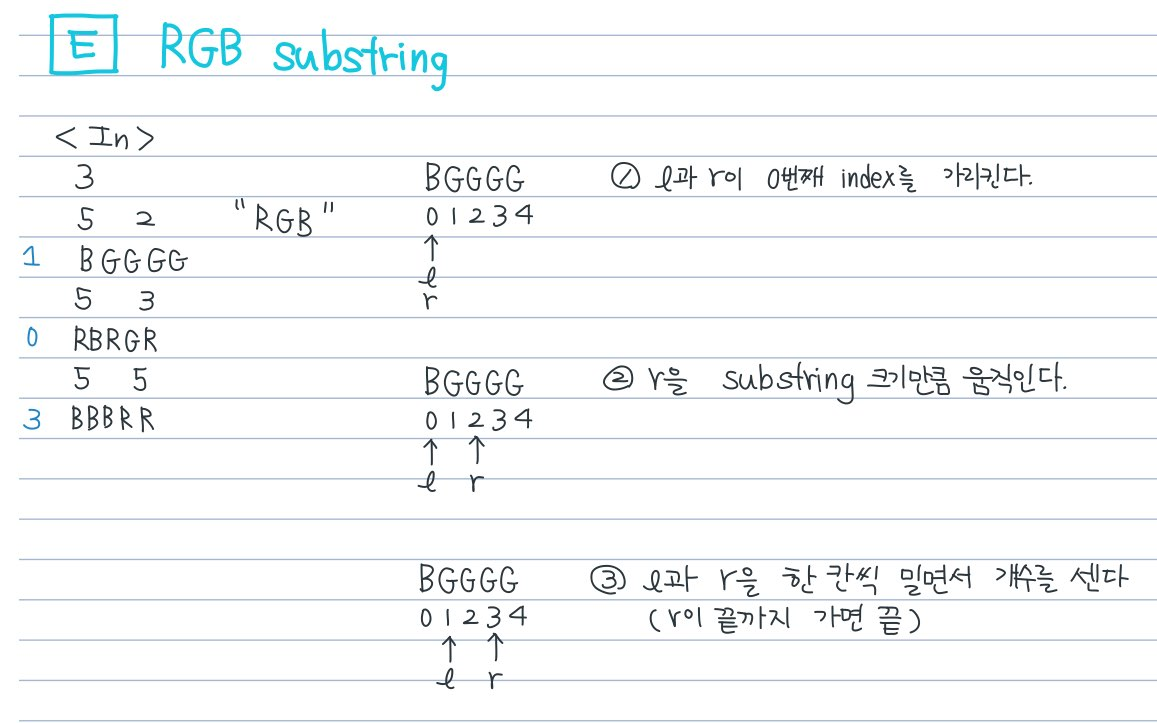 E RGB substring
<In>
3
5 2 "RGB"
1 BGGGG
5 3
0 RBRGR
5 5
3 BBBRR
BGGGG
0 1 2 3 4
↑
l
r
① l과 r이 0번째 index를 가리킨다.
BGGGG
0 1 2 3 4
↑ ↑
l r
② r을 substring 크기만큼 움직인다.
BGGGG
0 1 2 3 4
↑ ↑
l r
③ l과 r을 한 칸씩 밀면서 개수를 센다
(r이 끝까지 가면 끝)